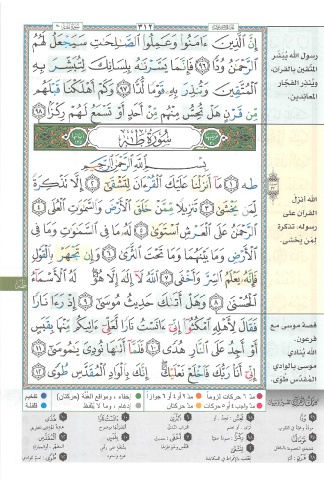 ٣١٢
إِنَّ الَّذِينَ ءَامَنُوا وَعَمِلُوا الصَّالِحَاتِ سَيَجْعَلُ لَهُمُ
الرَّحْمَنُ وُدًّا ٩٦ فَإِنَّمَا يَسَّرْنَاهُ بِلِسَانِكَ لِتُبَشِّرَ بِهِ
الْمُتَّقِينَ وَتُنْذِرَ بِهِ قَوْمًا لُدًّا ٩٧ وَكَمْ أَهْلَكْنَا قَبْلَهُمْ
مِنْ قَرْنٍ هَلْ تُحِسُّ مِنْهُمْ مِنْ أَحَدٍ أَوْ تَسْمَعُ لَهُمْ رِكْزًا ٩٨
سُورَةُ طه
بِسْمِ اللَّهِ الرَّحْمَنِ الرَّحِيمِ
طه ١ مَا أَنْزَلْنَا عَلَيْكَ الْقُرْءَانَ لِتَشْقَى ٢ إِلَّا تَذْكِرَةً
لِمَنْ يَخْشَى ٣ تَنْزِيلًا مِمَّنْ خَلَقَ الْأَرْضَ وَالسَّمَوَاتِ الْعُلَى ٤
الرَّحْمَنُ عَلَى الْعَرْشِ اسْتَوَى ٥ لَهُ مَا فِي السَّمَوَاتِ وَمَا فِي
الْأَرْضِ وَمَا بَيْنَهُمَا وَمَا تَحْتَ الثَّرَى ٦ وَإِنْ تَجْهَرْ بِالْقَوْلِ
فَإِنَّهُ يَعْلَمُ السِّرَّ وَأَخْفَى ٧ اللَّهُ لَا إِلَهَ إِلَّا هُوَ لَهُ الْأَسْمَاءُ
الْحُسْنَى ٨ وَهَلْ أَتَاكَ حَدِيثُ مُوسَى ٩ إِذْ رَءَا نَارًا
فَقَالَ لِأَهْلِهِ امْكُثُوا إِنِّي ءَانَسْتُ نَارًا لَعَلِّي ءَاتِيكُمْ مِنْهَا بِقَبَسٍ
أَوْ أَجِدُ عَلَى النَّارِ هُدًى ١٠ فَلَمَّا أَتَاهَا نُودِيَ يَا مُوسَى ١١
إِنِّي أَنَا رَبُّكَ فَاخْلَعْ نَعْلَيْكَ إِنَّكَ بِالْوَادِ الْمُقَدَّسِ طُوًى ١٢
رسول الله يُبَشّر
المتقين بالقرآن،
ويُنذر الفجّار
المعاندين.
الله أنزل
القرآن على
رسوله، تذكرة
لمن يخشى.
قصة موسى مع
فرعون.
الله يُنادي
موسى بالوادي
المقدس طُوى.